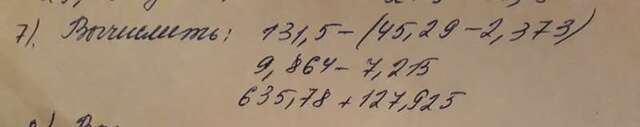 7). Вычислить: 131,5-(45,29-2,373)
9,864-7,215
635,78+127,925